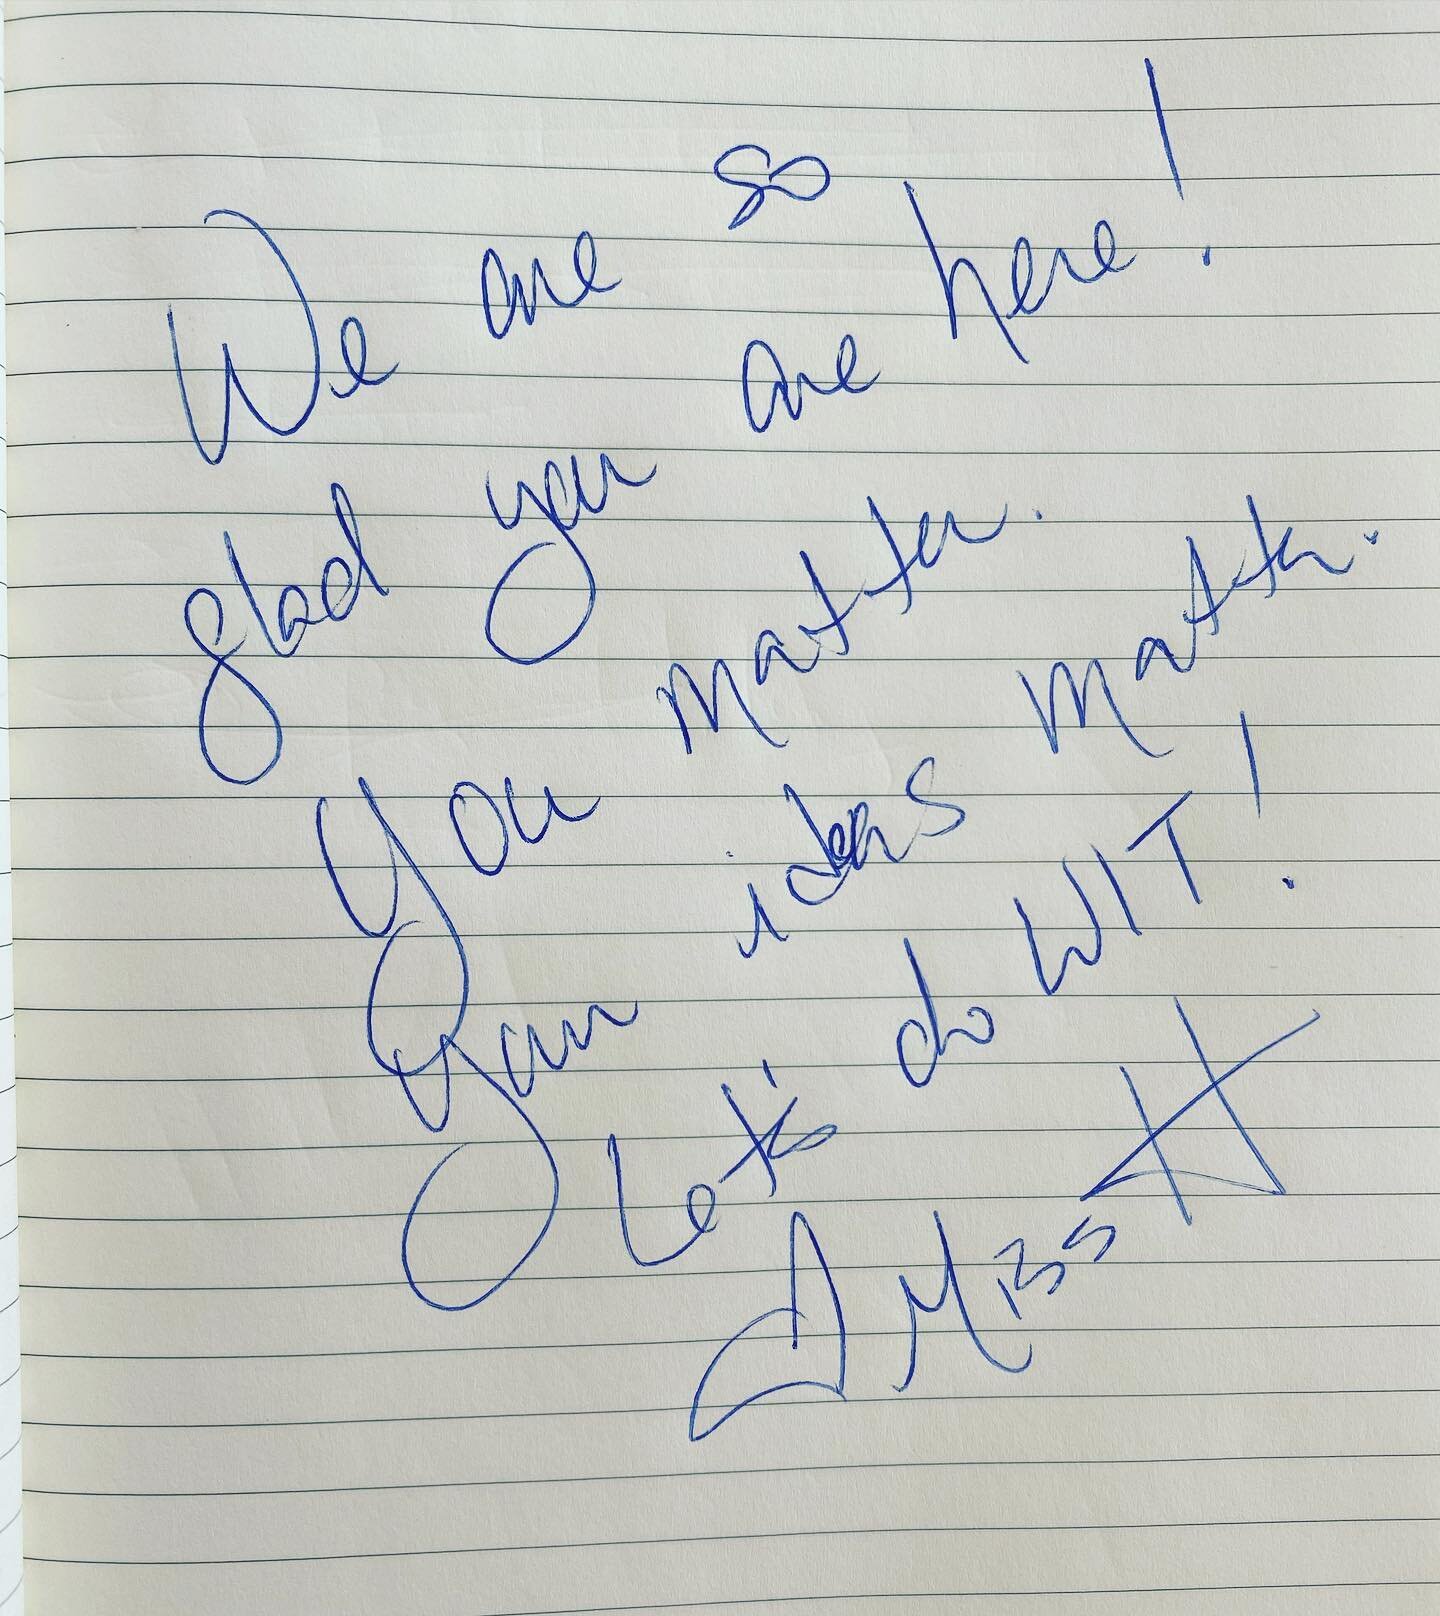 We are so
glad you are here!
You matter.
Your ideas matter.
Let's do WIT!
Miss H